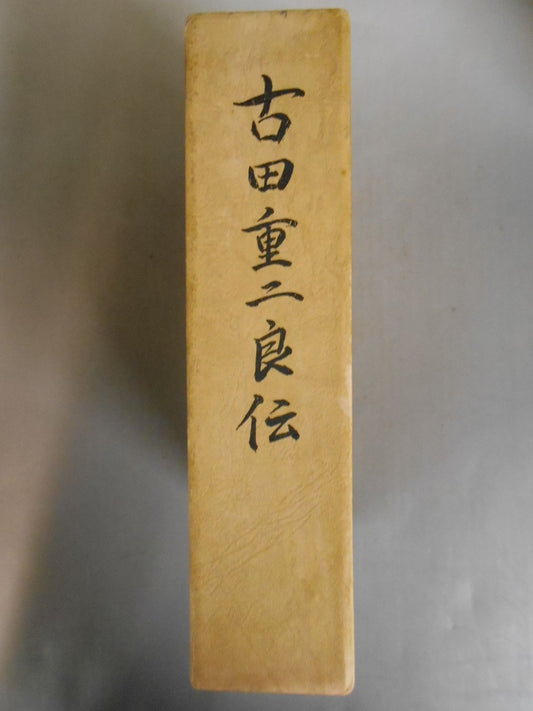 古田重二良伝